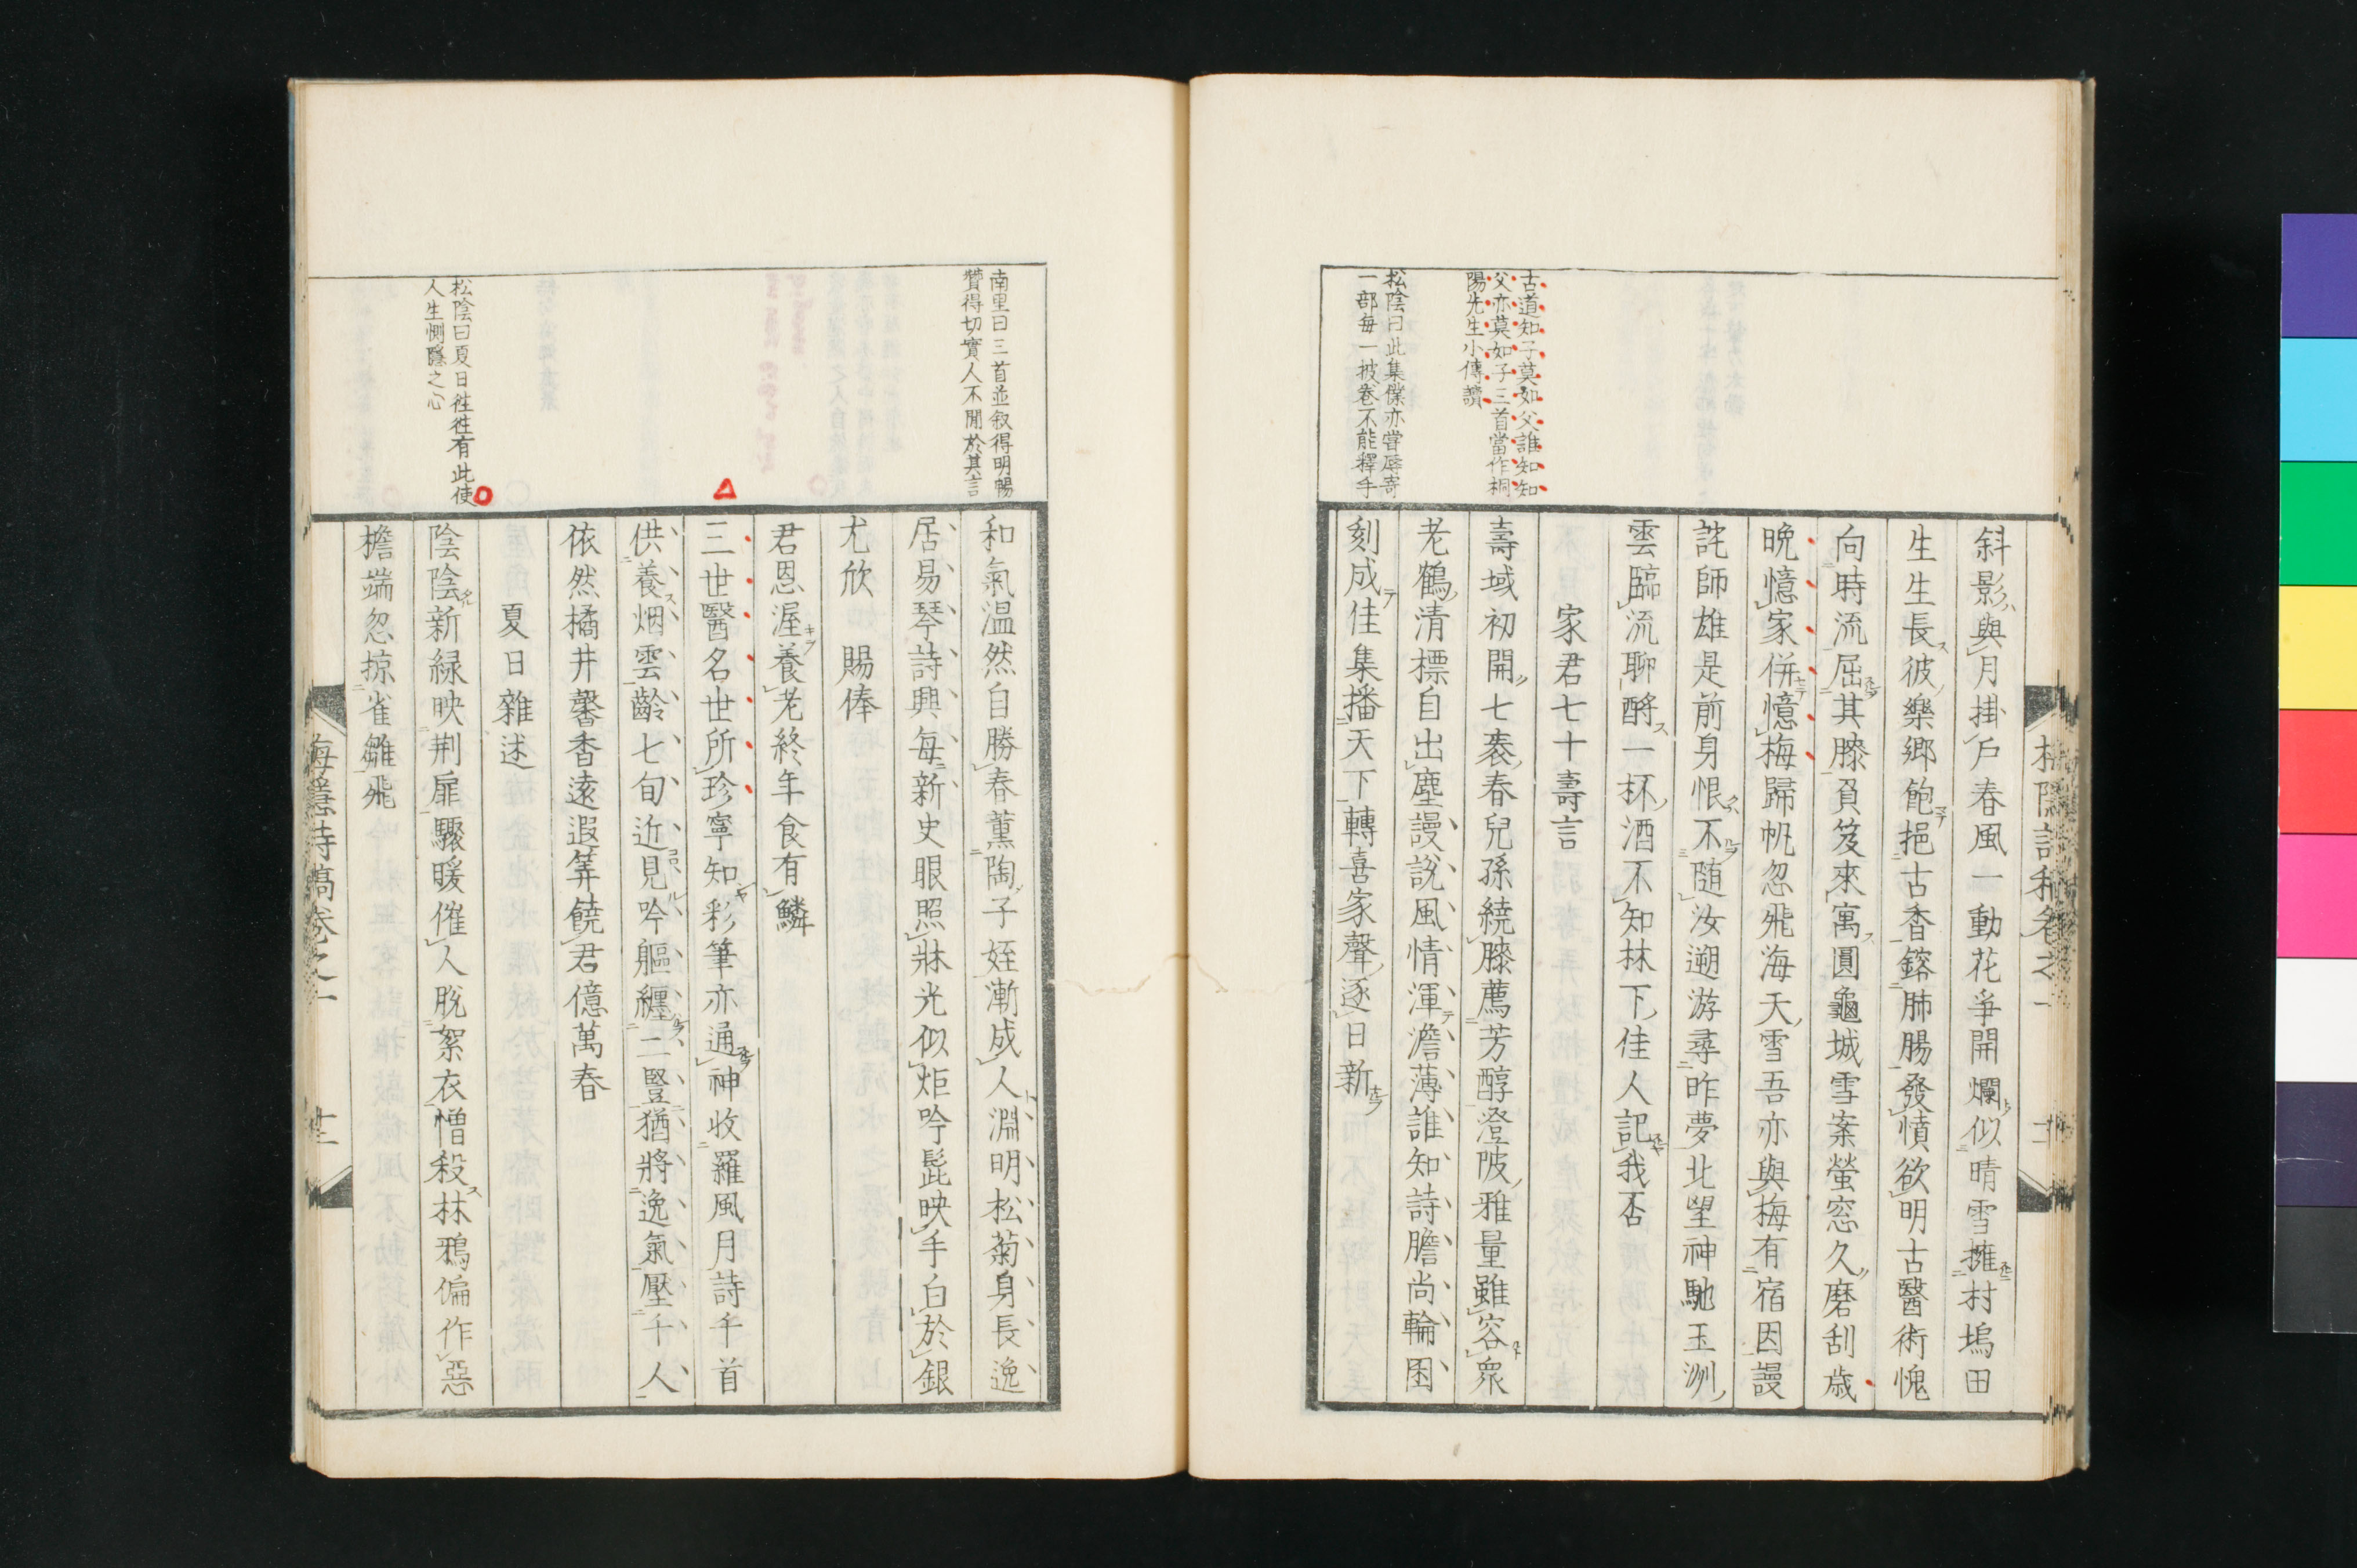 古道知子莫如父誰知知
父亦莫如子三首當作桐
陽先生小傳讀
松陰曰此集僕亦嘗辱寄
一部每一披卷不能釋手
斜影與月掛戶春風一動花爭開爛似晴雪擁村塢田
生生長彼樂鄉飽挹古香鎔肺腸發憤欲明古醫術愧
向時流屈其膝負笈來寓圓龜城雪案螢窓久磨刮歲
晚憶家併憶梅歸帆忽飛海天雪吾亦與梅有宿因謾
詫師雄是前身恨不隨汝遡游尋昨夢北望神馳玉洲
雲臨流聊酹一杯酒不知林下佳人記我否
家君七十壽言
壽域初開七袠春兒孫繞膝薦芳醇澄陂雅量雖容衆
老鶴清標自出塵謾說風情渾澹薄誰知詩膽尚輪囷
刻成佳集播天下轉喜家聲逐日新
南里曰三首並叙得明暢
贊得切實人不閒於其言
松陰曰夏日往往有此使
人生惻隱之心
和氣温然自勝春薰陶子姪漸成人淵明松菊身長逸
居易琴詩興每新史眼照牀光似炬吟髭映手白於銀
尤欣　賜俸
君恩渥養老終年食有鱗
三世醫名世所珍寧知彩筆亦通神收羅風月詩千首
供養烟雲齡七旬近見吟軀纏二豎猶將逸氣壓千人
依然橘井馨香遠遐筭饒君億萬春
夏日雜述
陰陰新緑映荆扉驟暖催人脫絮衣憎殺林鴉偏作惡
檐端忽掠雀雛飛
梅隱詩稿卷之一
十二